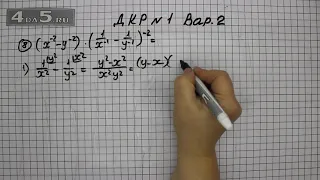 4DA5.RU
ДКР №1 Вар. 2
⑧ (x⁻² - y⁻²) · (1/x⁻¹ - 1/y⁻¹)⁻² =
1) 1/x² - 1/y² = (y² - x²)/(x²y²) = (y-x)(